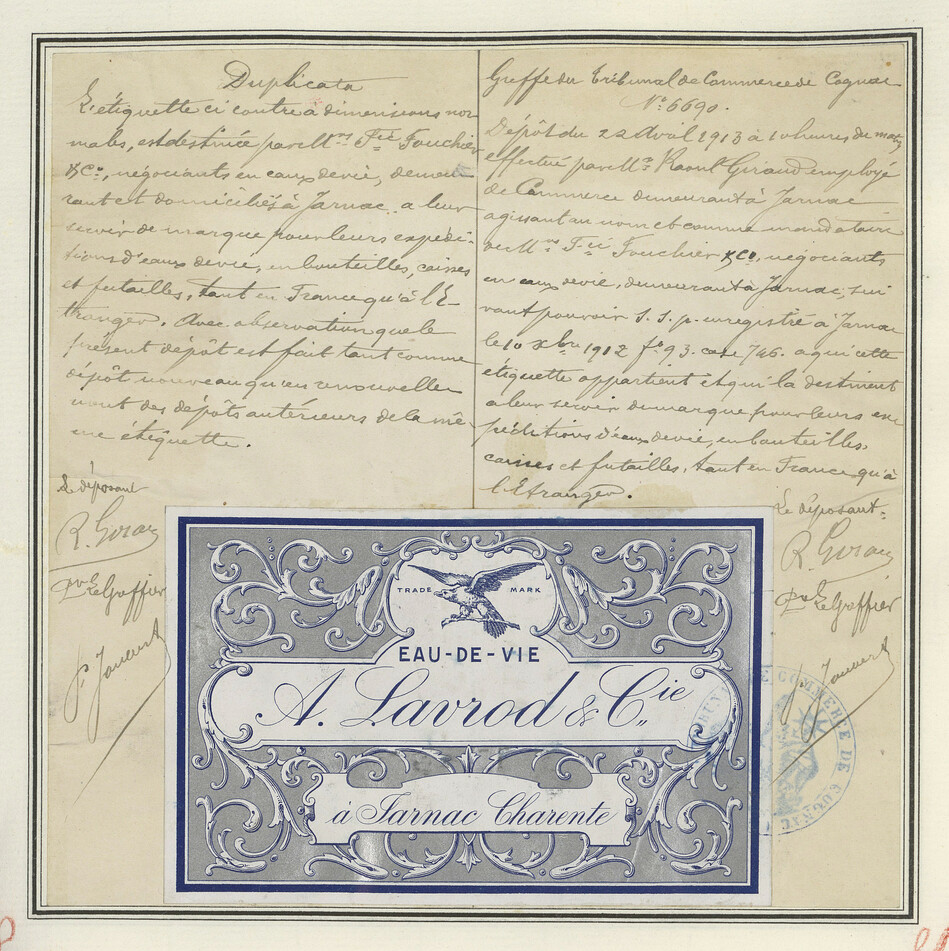 Duplicata
L'étiquette ci contre à dimensions nor
males, est destinée par MM. Fçis Fouchier
& Co, négociants en eaux de vie, demeu
rant et domiciliés à Jarnac, a leur
servir de marque pour leurs expédi-
tions d'eaux de vie, en bouteilles, caisses
et futailles, tant en France qu'à l'É-
tranger. Avec observation que le
présent dépôt est fait tant comme
dépôt nouveau qu'en renouvelle
ment des dépôts antérieurs de la mê-
me étiquette.
Le déposant
R. Giraud
pour le Greffier
Greffe du Tribunal de Commerce de Cognac
No 6690.
Dépôt du 22 Avril 1913 à 10 heures du matin
effectué par Mr Raoul Giraud employé
de Commerce demeurant à Jarnac
agissant au nom et comme mandataire
de MM. Fçis Fouchier & Co, négociants
en eaux de vie, demeurant à Jarnac, sui
vant pouvoir S. S. p. enregistré à Jarnac
le 10 Xbre 1912 fo 93. case 746. a qui cette
étiquette appartient et qui la destinent
a leur servir de marque pour leurs ex
péditions d'eaux de vie, en bouteilles,
caisses et futailles, tant en France qu'à
l'Etranger.
Le déposant
R. Giraud
pour le Greffier
TRADE MARK
EAU-DE-VIE
A. Lavrod & Cie
à Jarnac Charente
TRIBUNAL DE COMMERCE DE COGNAC